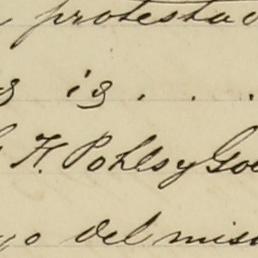 protesta
is . . .
F. Pohls y Go
yo del mis